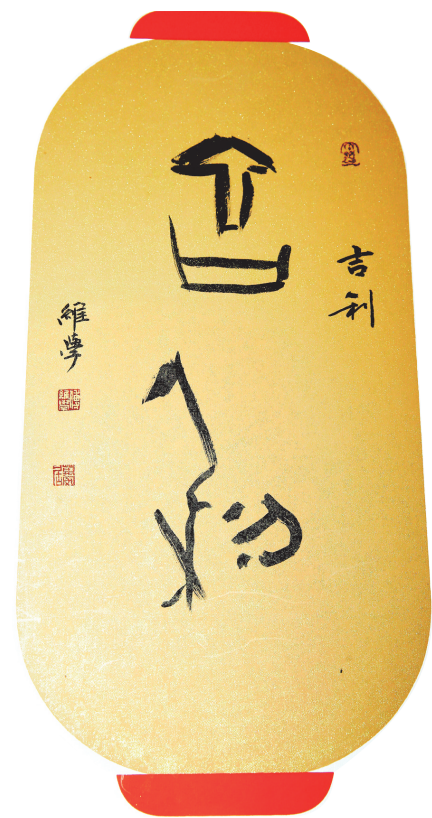 吉利
吉利
維學